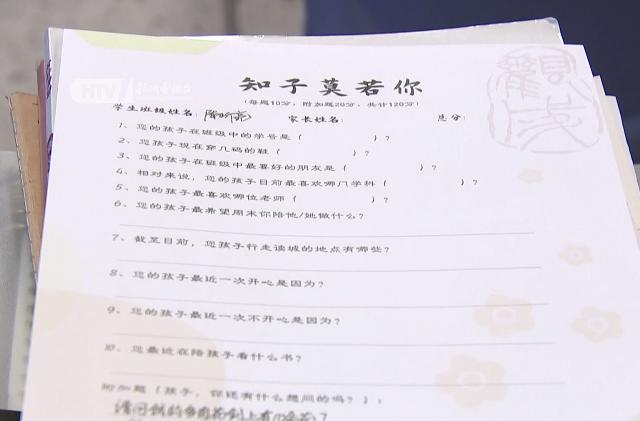 HTV
知子莫若你
(每题10分，附加题20分，共计120分)
学生班级姓名： 家长姓名： 总分：
1、您的孩子在班级中的学号是（ ）？
2、您孩子现在穿几码的鞋（ ）？
3、您的孩子在班级中最要好的朋友是（ ）？
4、相对来说，您的孩子目前最喜欢哪门学科（ ）？
5、您的孩子最喜欢哪位老师（ ）？
6、您的孩子最希望周末你陪他/她做什么？
7、截至目前，您孩子行走读城的地点有哪些？
8、您的孩子最近一次开心是因为？
9、您的孩子最近一次不开心是因为？
10、您最近在陪孩子看什么书？
附加题（孩子，你还有什么想问的吗？）：
请问我的